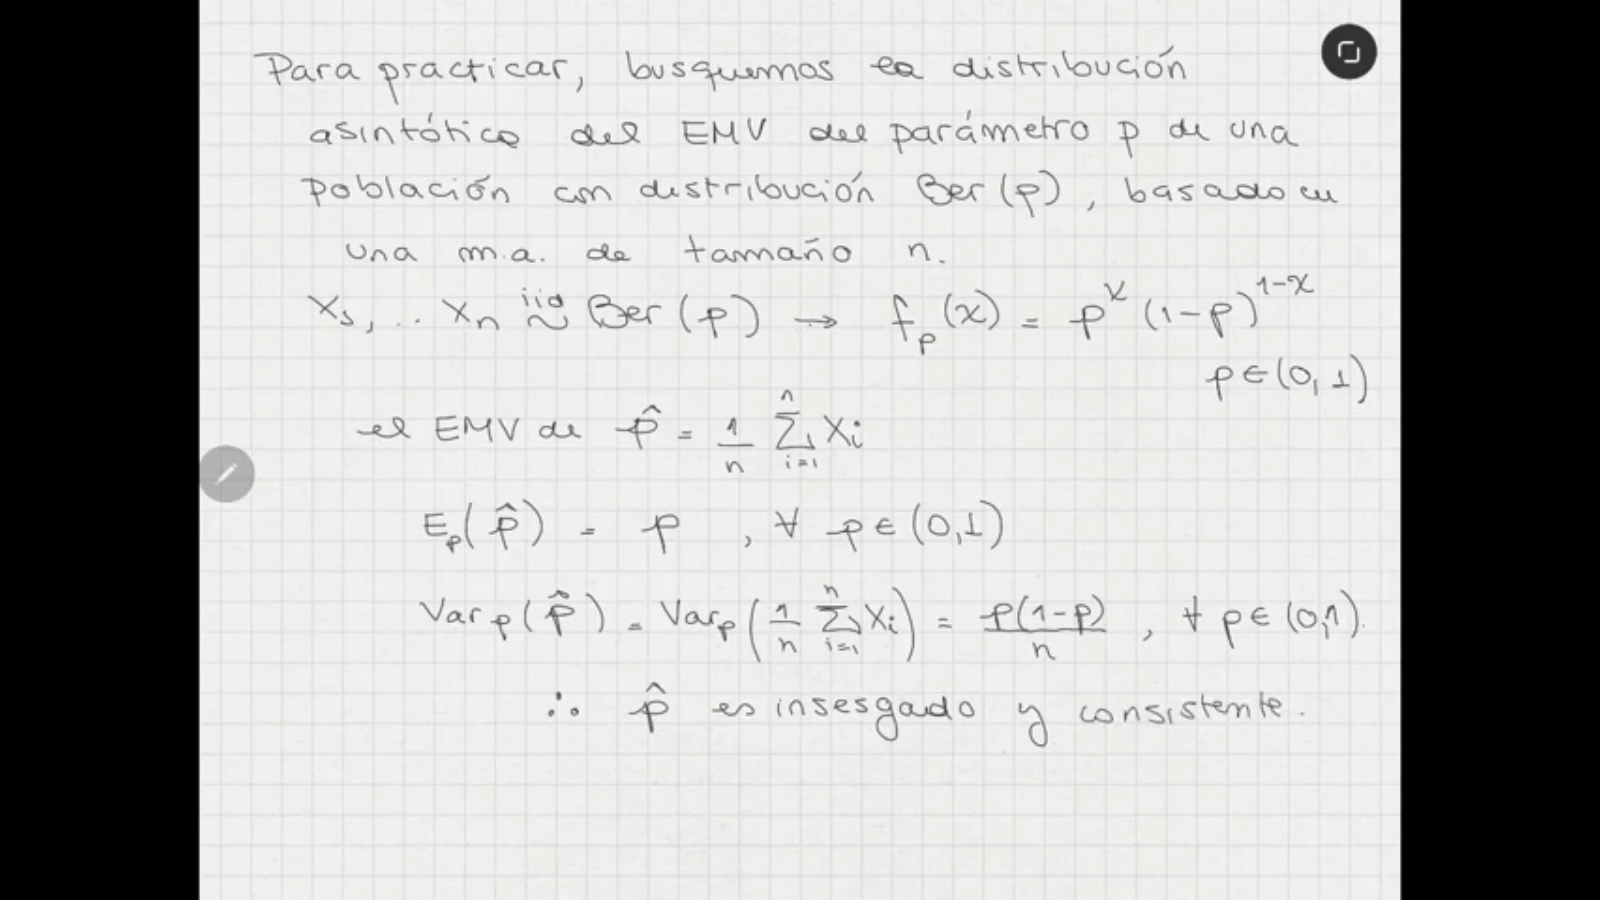 Para practicar, busquemos la distribución
asintótica del EMV del parámetro p de una
población con distribución Ber(p), basado en
una m.a. de tamaño n.
X₁, ... Xₙ iid ~ Ber(p) → f_p(x) = p^x (1-p)^{1-x}
p ∈ (0, 1)
el EMV de p̂ = 1/n ∑_{i=1}^{n} Xᵢ
E_p(p̂) = p , ∀ p ∈ (0,1)
Var_p(p̂) = Var_p(1/n ∑_{i=1}^{n} Xᵢ) = p(1-p)/n , ∀ p ∈ (0,1).
∴ p̂ es insesgado y consistente.